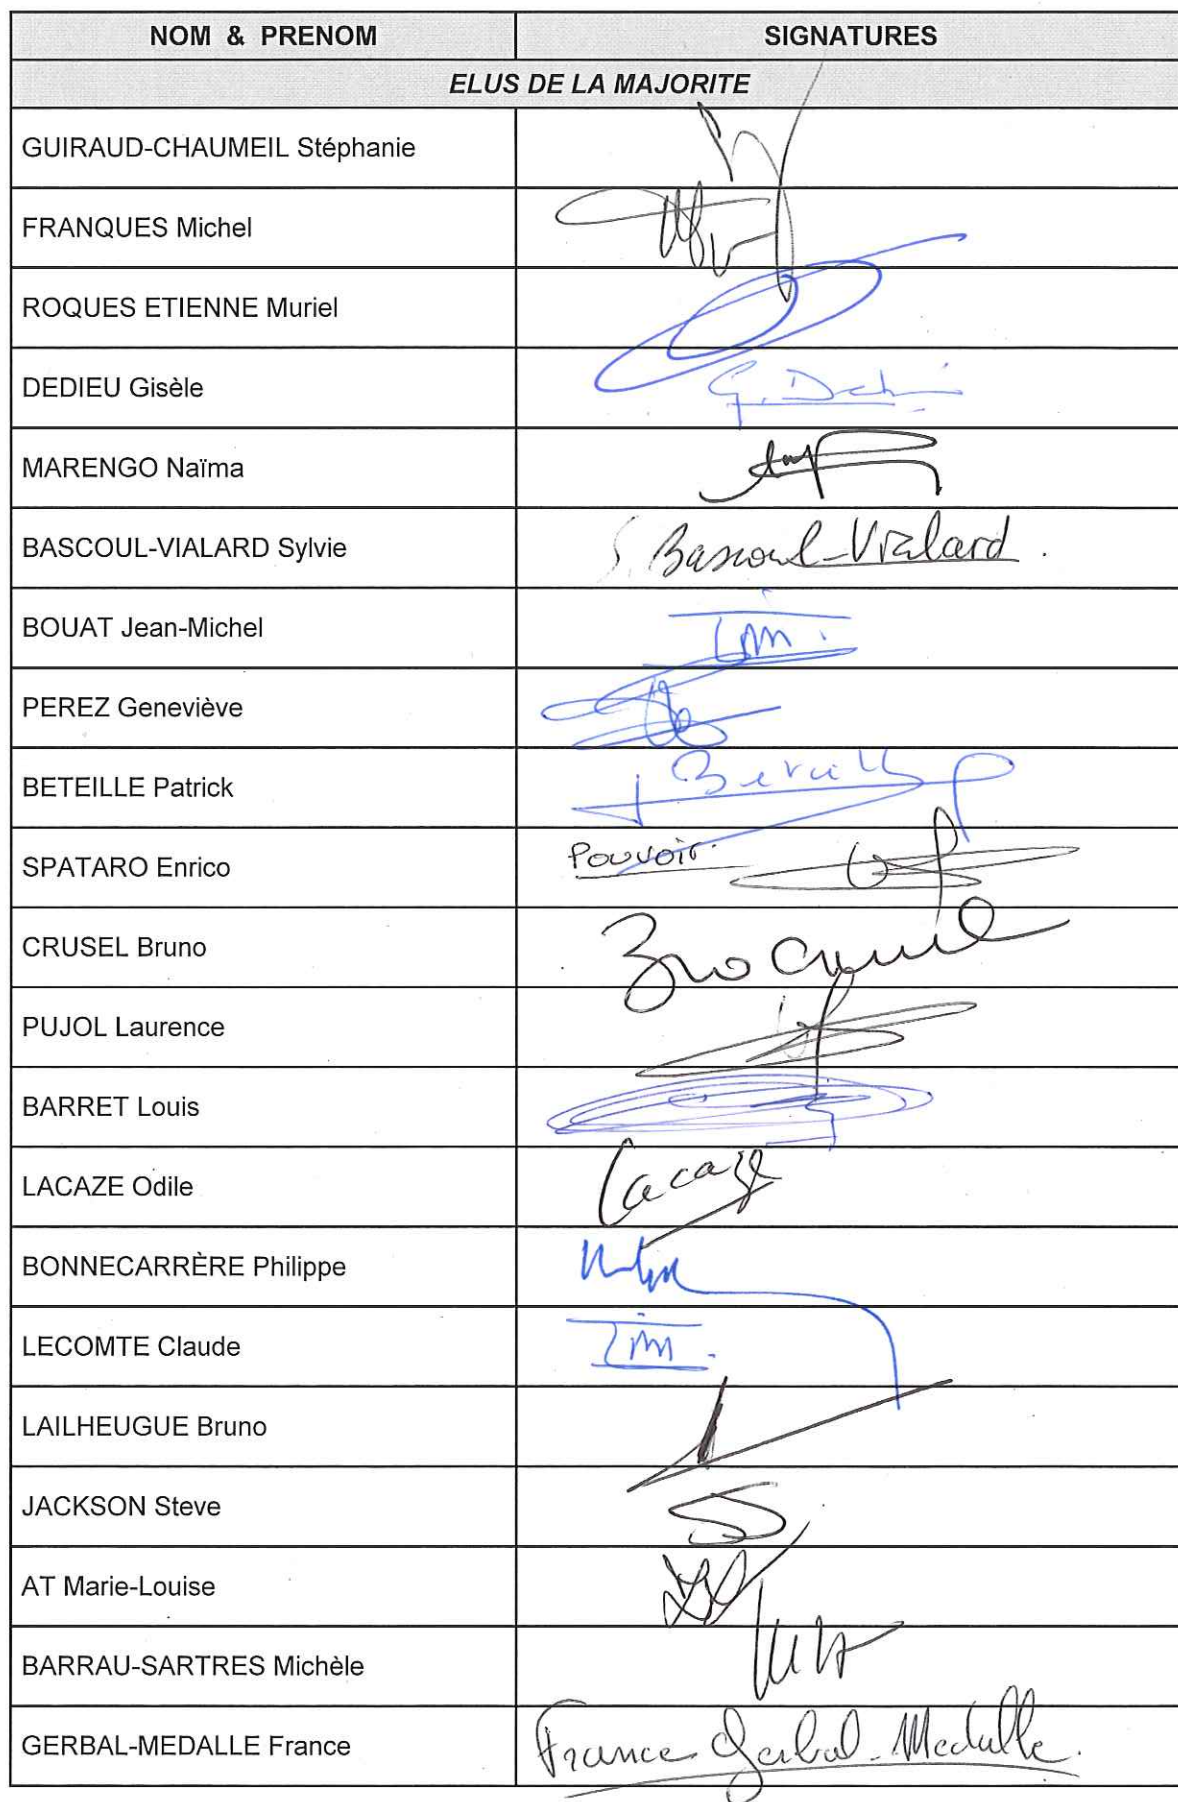 NOM & PRENOM SIGNATURES
ELUS DE LA MAJORITE
GUIRAUD-CHAUMEIL Stéphanie
FRANQUES Michel
ROQUES ETIENNE Muriel
DEDIEU Gisèle
MARENGO Naïma
BASCOUL-VIALARD Sylvie S. Bascoul-Vialard.
BOUAT Jean-Michel
PEREZ Geneviève
BETEILLE Patrick
SPATARO Enrico Pouvoir.
CRUSEL Bruno
PUJOL Laurence
BARRET Louis
LACAZE Odile Lacaze
BONNECARRÈRE Philippe
LECOMTE Claude
LAILHEUGUE Bruno
JACKSON Steve
AT Marie-Louise
BARRAU-SARTRES Michèle
GERBAL-MEDALLE France France Gerbal-Medalle.